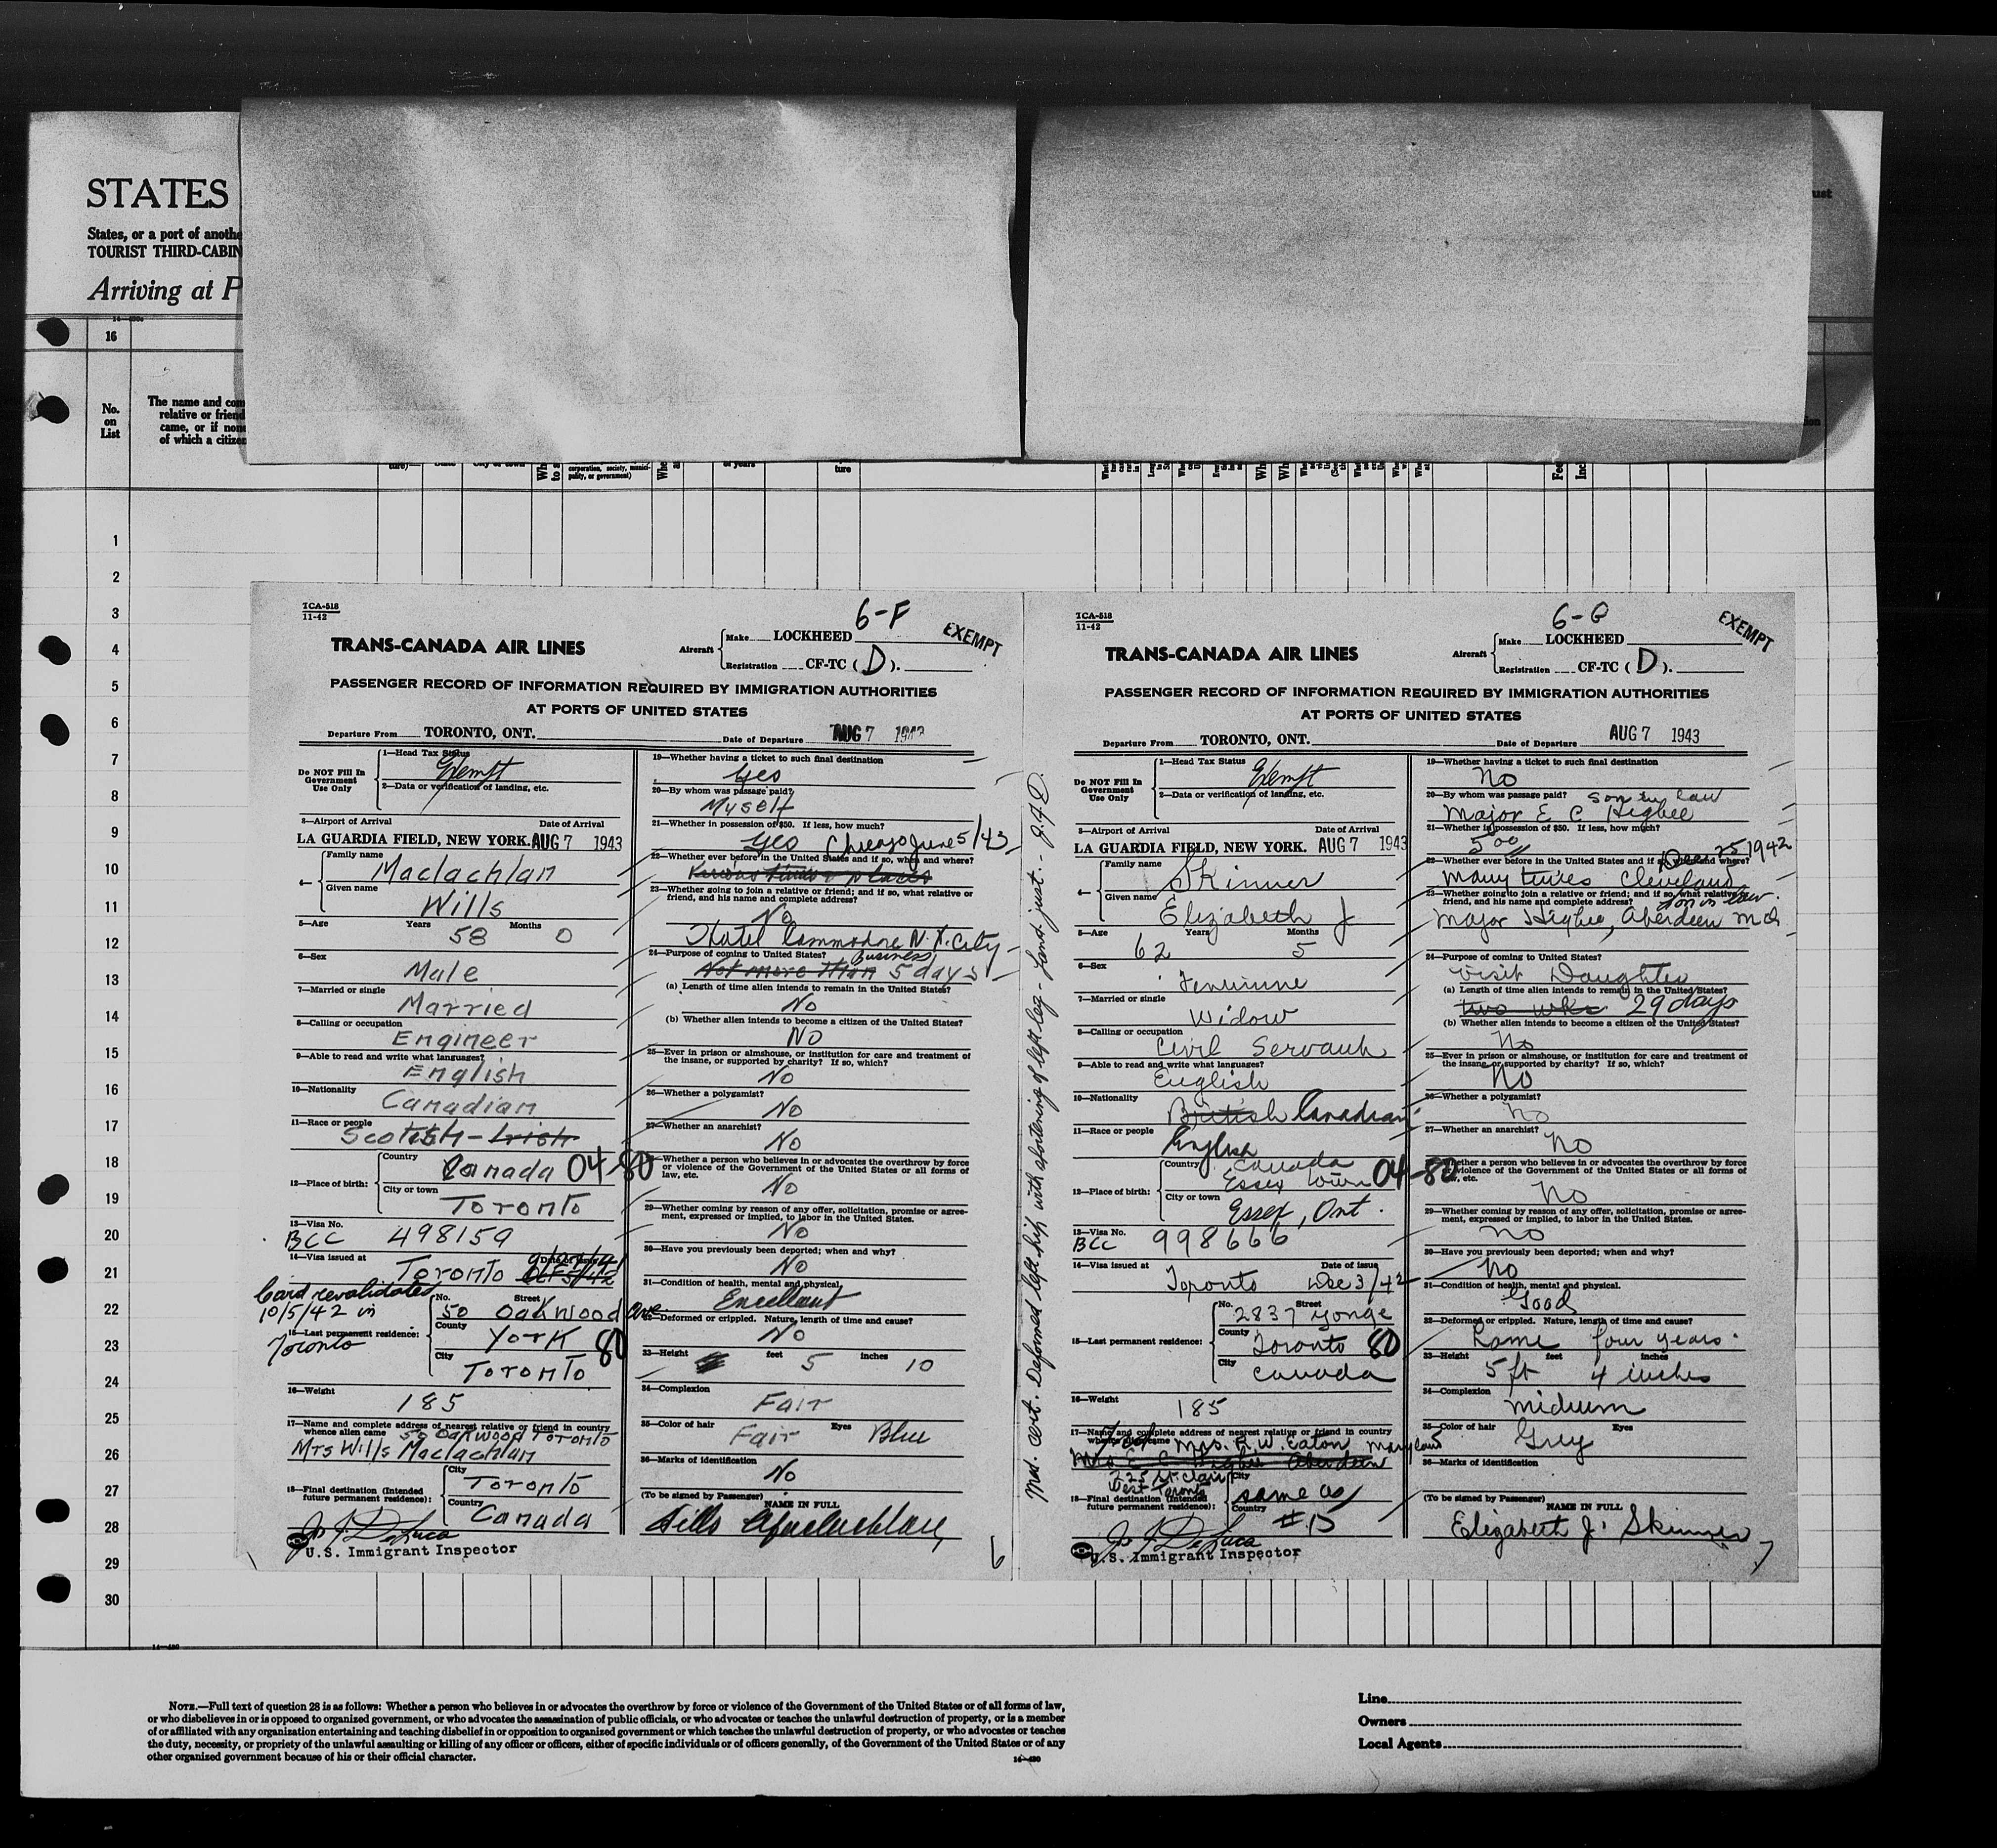 STATES
States, or a port of anothe
TOURIST THIRD-CABIN
Arriving at P
ust
16
No.
on
List
The name and com
relative or friend
came, or if none
of which a citizen
ture)—
State
City or town
corporation, society, munici-
pality, or government)
of years
ture
1
2
3
4
5
6
7
8
9
10
11
12
13
14
15
16
17
18
19
20
21
22
23
24
25
26
27
28
29
30
TCA-518
11-42
6-F
EXEMPT
TRANS-CANADA AIR LINES
Aircraft
Make LOCKHEED
Registration CF-TC (D).
PASSENGER RECORD OF INFORMATION REQUIRED BY IMMIGRATION AUTHORITIES
AT PORTS OF UNITED STATES
Departure From TORONTO, ONT.
Date of Departure AUG 7 1943
Do NOT Fill In
Government
Use Only
1—Head Tax Status
Exempt
2—Data or verification of landing, etc.
3—Airport of Arrival Date of Arrival
LA GUARDIA FIELD, NEW YORK. AUG 7 1943
4— Family name
Maclachlan
Given name
Wills
5—Age Years Months
58 0
6—Sex
Male
7—Married or single
Married
8—Calling or occupation
Engineer
9—Able to read and write what languages?
English
10—Nationality
Canadian
11—Race or people
Scotish - Irish
12—Place of birth:
Country
Canada 04-80
City or town
Toronto
13—Visa No.
BCC 498159
14—Visa issued at Date of issue
Toronto Oct 5/42
Card revalidated
10/5/42 in
Toronto
15—Last permanent residence:
No. Street
50 Oakwood Ave
County
York 80
City
Toronto
16—Weight
185
17—Name and complete address of nearest relative or friend in country
whence alien came 50 Oakwood Toronto
Mrs Wills Maclachlan
18—Final destination (Intended
future permanent residence):
City
Toronto
Country
Canada
Js J DeLuca
U.S. Immigrant Inspector
19—Whether having a ticket to such final destination
Yes
20—By whom was passage paid?
Myself
21—Whether in possession of $50. If less, how much?
Yes Chicago June 5/43
22—Whether ever before in the United States and if so, when and where?
23—Whether going to join a relative or friend; and if so, what relative or
friend, and his name and complete address?
No
Hotel Commodore N.Y. City
24—Purpose of coming to United States? Business
Not more than 5 days
(a) Length of time alien intends to remain in the United States?
No
(b) Whether alien intends to become a citizen of the United States?
No
25—Ever in prison or almshouse, or institution for care and treatment of
the insane, or supported by charity? If so, which?
No
26—Whether a polygamist?
No
27—Whether an anarchist?
No
28—Whether a person who believes in or advocates the overthrow by force
or violence of the Government of the United States or all forms of
law, etc.
No
29—Whether coming by reason of any offer, solicitation, promise or agree-
ment, expressed or implied, to labor in the United States.
No
30—Have you previously been deported; when and why?
No
31—Condition of health, mental and physical.
Excellent
32—Deformed or crippled. Nature, length of time and cause?
No
33—Height feet 5 inches 10
34—Complexion
Fair
35—Color of hair Eyes
Fair Blue
36—Marks of identification
No
(To be signed by Passenger)
NAME IN FULL
Wills Maclachlan
6
Med. cert. Deformed left hip with shortening of left leg - Land. just. - J.J.D.
TCA-518
11-42
6-G
EXEMPT
TRANS-CANADA AIR LINES
Aircraft
Make LOCKHEED
Registration CF-TC (D).
PASSENGER RECORD OF INFORMATION REQUIRED BY IMMIGRATION AUTHORITIES
AT PORTS OF UNITED STATES
Departure From TORONTO, ONT.
Date of Departure AUG 7 1943
Do NOT Fill In
Government
Use Only
1—Head Tax Status
Exempt
2—Data or verification of landing, etc.
3—Airport of Arrival Date of Arrival
LA GUARDIA FIELD, NEW YORK. AUG 7 1943
4— Family name
Skinner
Given name
Elizabeth J
5—Age Years Months
62 5
6—Sex
Feminine
7—Married or single
Widow
8—Calling or occupation
Civil Servant
9—Able to read and write what languages?
English
10—Nationality
British Canadian
11—Race or people
English
12—Place of birth:
Country Canada
Essex Town 04-80
City or town
Essex, Ont.
13—Visa No.
BCC 998666
14—Visa issued at Date of issue
Toronto Dec 3/42
15—Last permanent residence:
No. Street
2837 Yonge
County
Toronto 80
City
Canada
16—Weight
185
17—Name and complete address of nearest relative or friend in country
whence alien came Mrs. R.W. Eaton Maryland
Mrs E C Higbee Aberdeen
225 St. Clair
West Toronto
18—Final destination (Intended
future permanent residence):
City
same as
Country
#15
Js J DeLuca
U.S. Immigrant Inspector
19—Whether having a ticket to such final destination
No
20—By whom was passage paid? son in law
Major E C Higbee
21—Whether in possession of $50. If less, how much?
500
22—Whether ever before in the United States and if so, when and where? Dec 25 1942
Many times Cleveland
23—Whether going to join a relative or friend; and if so, what relative or
friend, and his name and complete address? Son in law.
Major Higbee, Aberdeen Md
24—Purpose of coming to United States?
Visit Daughter
(a) Length of time alien intends to remain in the United States?
two wks 29 days
(b) Whether alien intends to become a citizen of the United States?
No
25—Ever in prison or almshouse, or institution for care and treatment of
the insane, or supported by charity? If so, which?
No
26—Whether a polygamist?
No
27—Whether an anarchist?
No
28—Whether a person who believes in or advocates the overthrow by force
or violence of the Government of the United States or all forms of
law, etc.
No
29—Whether coming by reason of any offer, solicitation, promise or agree-
ment, expressed or implied, to labor in the United States.
No
30—Have you previously been deported; when and why?
No
31—Condition of health, mental and physical.
Good
32—Deformed or crippled. Nature, length of time and cause?
Lame four years
33—Height feet inches
5 ft 4 inches
34—Complexion
Midium
35—Color of hair Eyes
Grey
36—Marks of identification
(To be signed by Passenger)
NAME IN FULL
Elizabeth J. Skinner
7
NOTE.—Full text of question 28 is as follows: Whether a person who believes in or advocates the overthrow by force or violence of the Government of the United States or of all forms of law,
or who disbelieves in or is opposed to organized government, or who advocates the assassination of public officials, or who advocates or teaches the unlawful destruction of property, or is a member
of or affiliated with any organization entertaining and teaching disbelief in or opposition to organized government or which teaches the unlawful destruction of property, or who advocates or teaches
the duty, necessity, or propriety of the unlawful assaulting or killing of any officer or officers, either of specific individuals or of officers generally, of the Government of the United States or of any
other organized government because of his or their official character.
14—480
Line
Owners
Local Agents